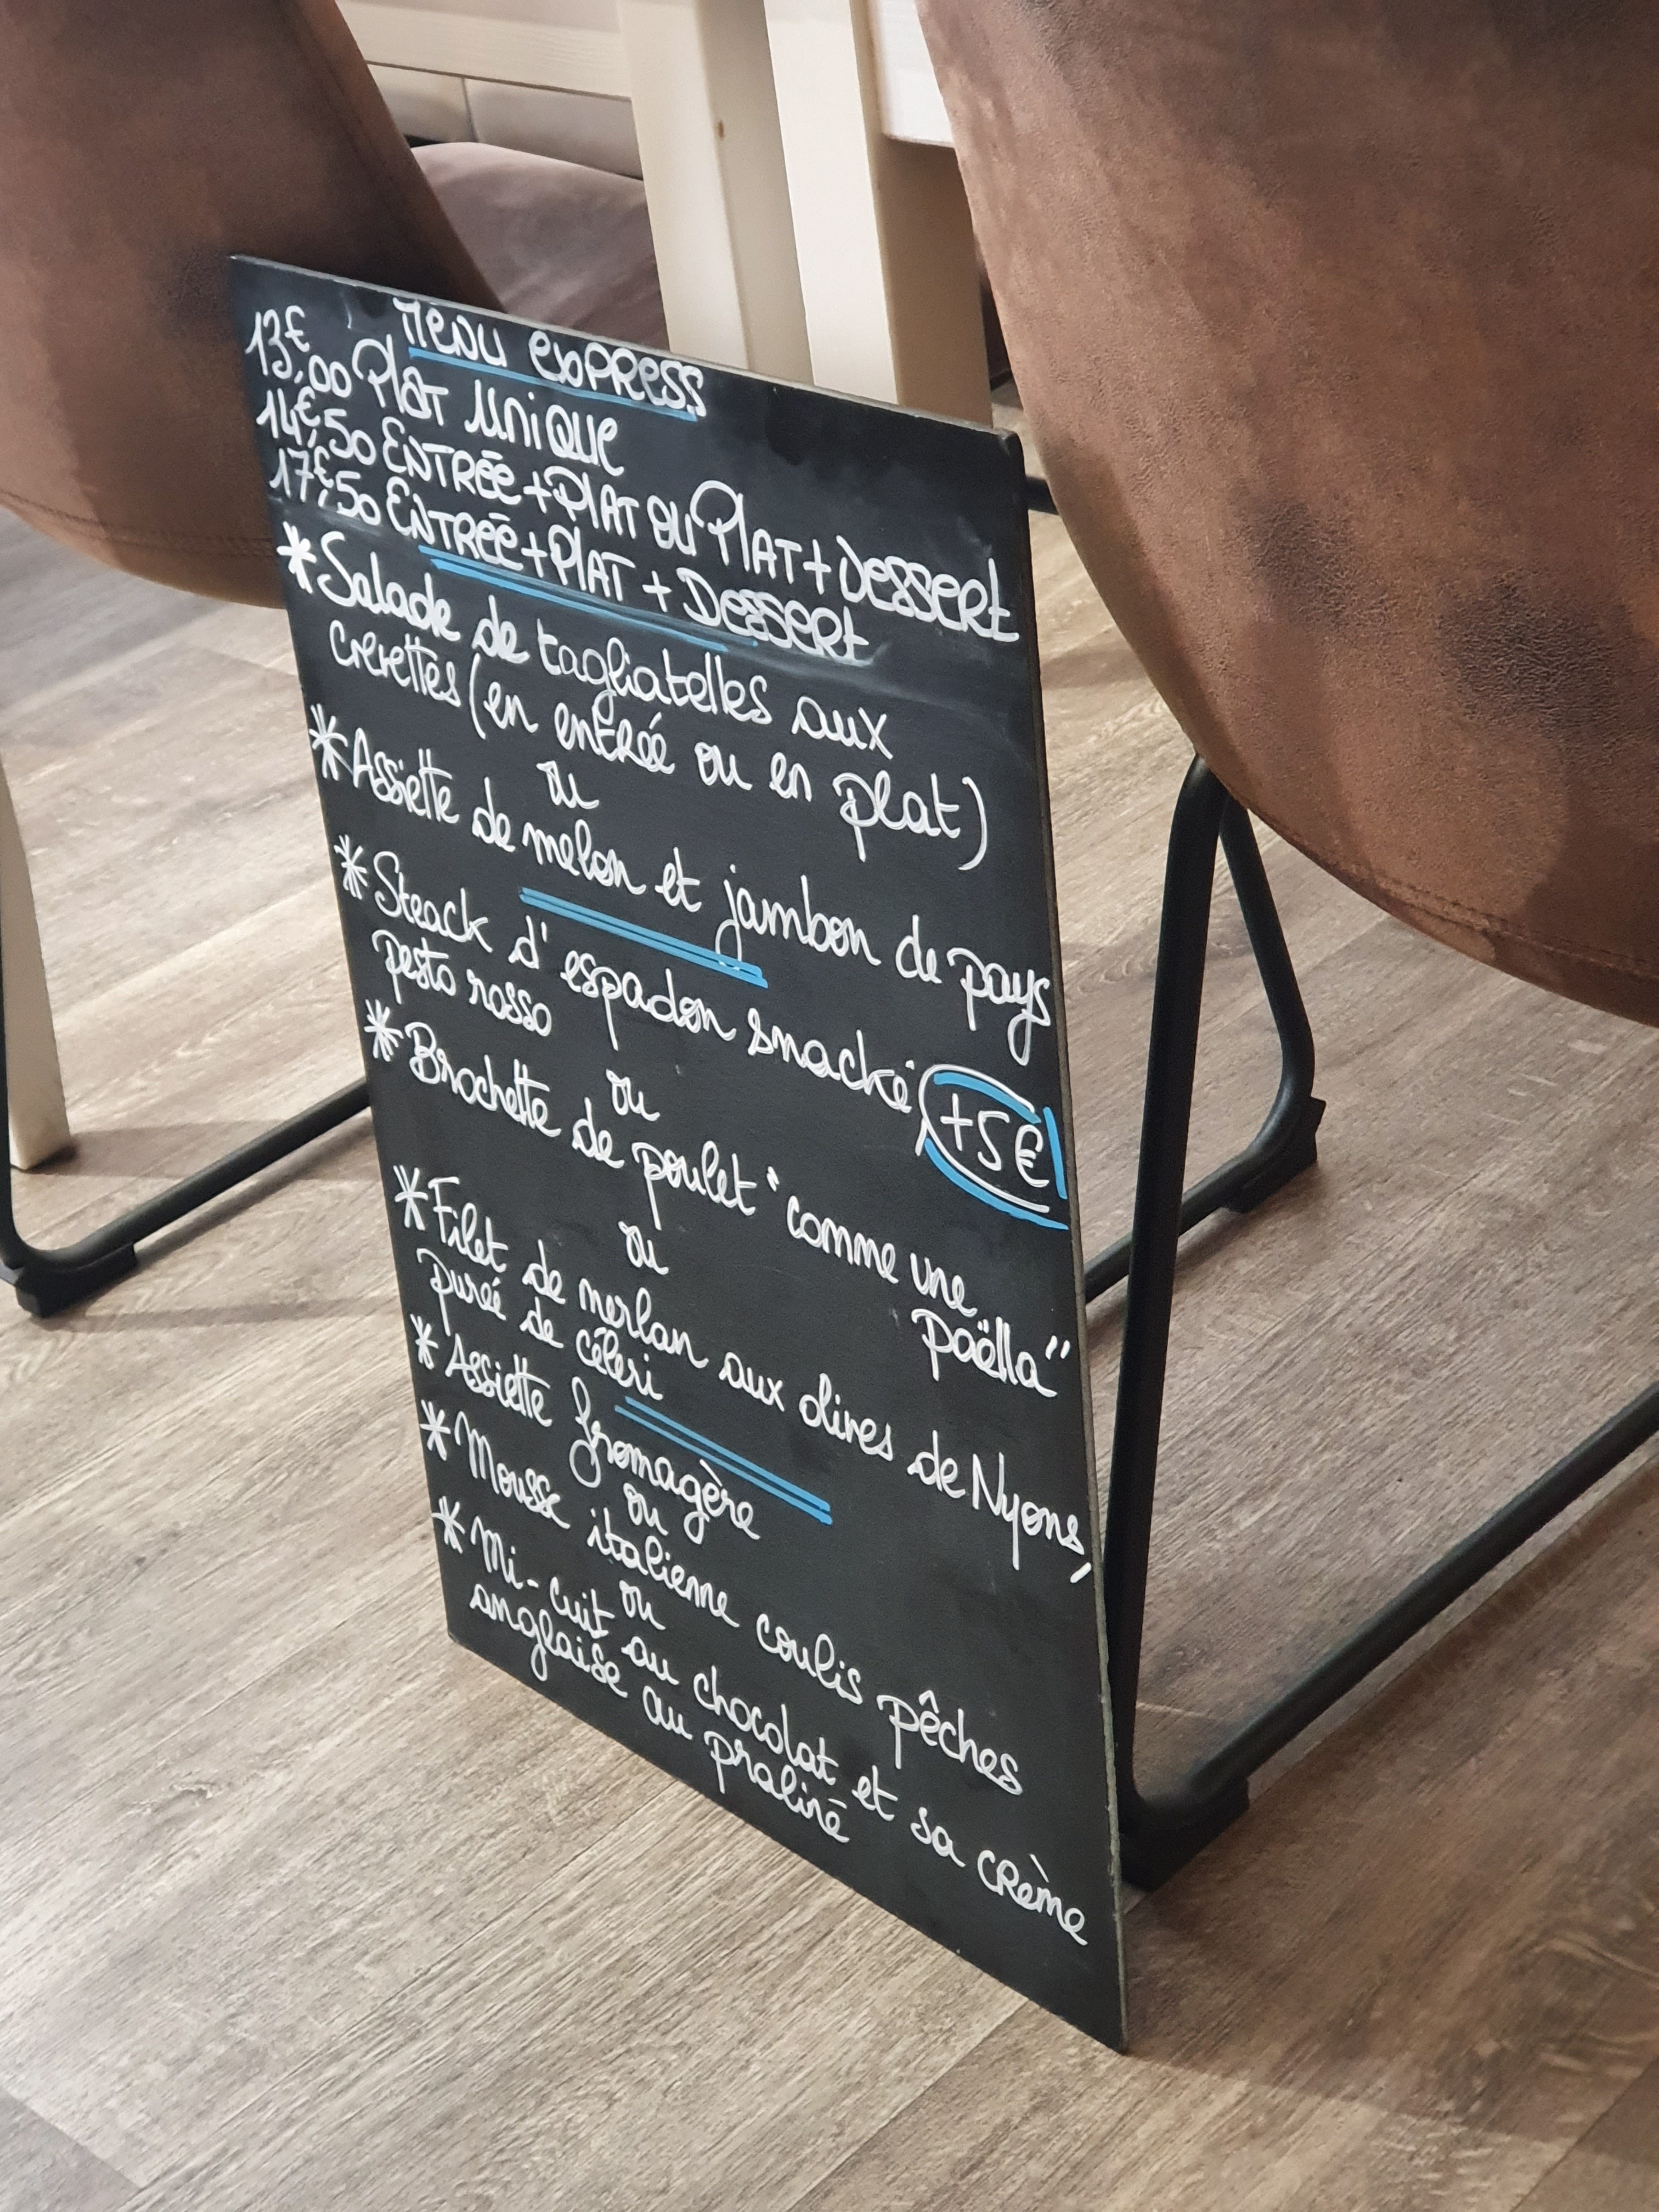 MENU EXPRESS
13€,00 PLAT UNIQUE
14€,50 ENTRÉE + PLAT OU PLAT + DESSERT
17€,50 ENTRÉE + PLAT + DESSERT
* Salade de tagliatelles aux
crevettes (en entrée ou en plat)
ou
* Assiette de melon et jambon de pays
* Steack d'espadon snacké, (+5€)
pesto rosso
ou
* Brochette de poulet "comme une
paëlla"
ou
* Filet de merlan aux olives de Nyons,
purée de céleri
* Assiette fromagère
ou
* Mousse italienne coulis pêches
ou
* Mi-cuit au chocolat et sa crème
anglaise au praliné